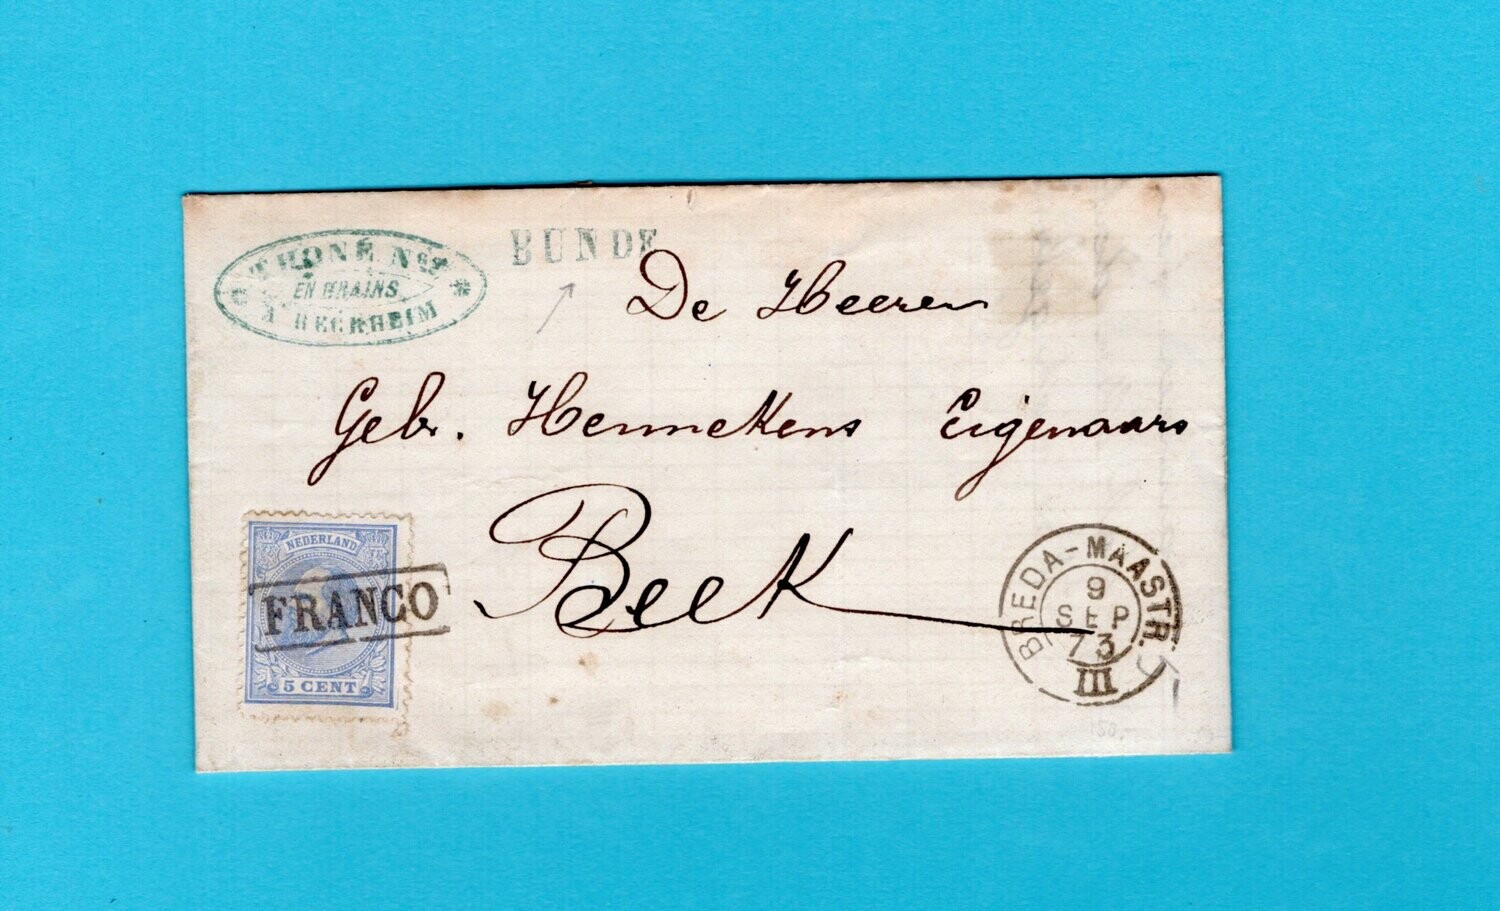 THONÉ Ngt
EN GRAINS
A RECKHEIM
BUNDE
De Heeren
Gebr. Hennekens Eigenaars
Beek
NEDERLAND
FRANCO
5 CENT
BREDA-MAASTR.
9
SEP
73
III
150,-